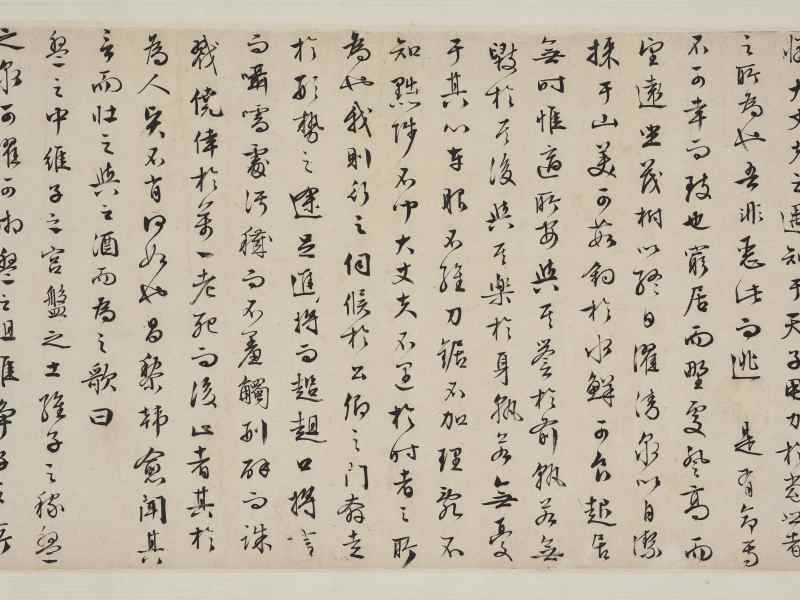 將大丈夫之遇知于天子用力於當世者
之所為也吾非惡此而逃是有命焉
不可幸而致也窮居而野處登高而
望遠坐茂樹以終日濯清泉以自潔
採于山美可茹釣於水鮮可食起居
無時惟適所安與其譽於前孰若無
毀於其後與其樂於身孰若無憂
于其心車服不維刀鋸不加理亂不
知黜陟不聞大丈夫不遇於時者之所
為也我則行之伺候於公卿之門奔走
於形勢之途足進將而趑趄口將言
而囁嚅處污穢而不羞觸刑辟而誅
戮僥倖於萬一老死而後止者其於
為人賢不肖何如也昌黎韓愈聞其
言而壯之與之酒而為之歌曰
盤之中維子之宮盤之土維子之稼盤
之泉可濯可湘盤之阻誰爭子所